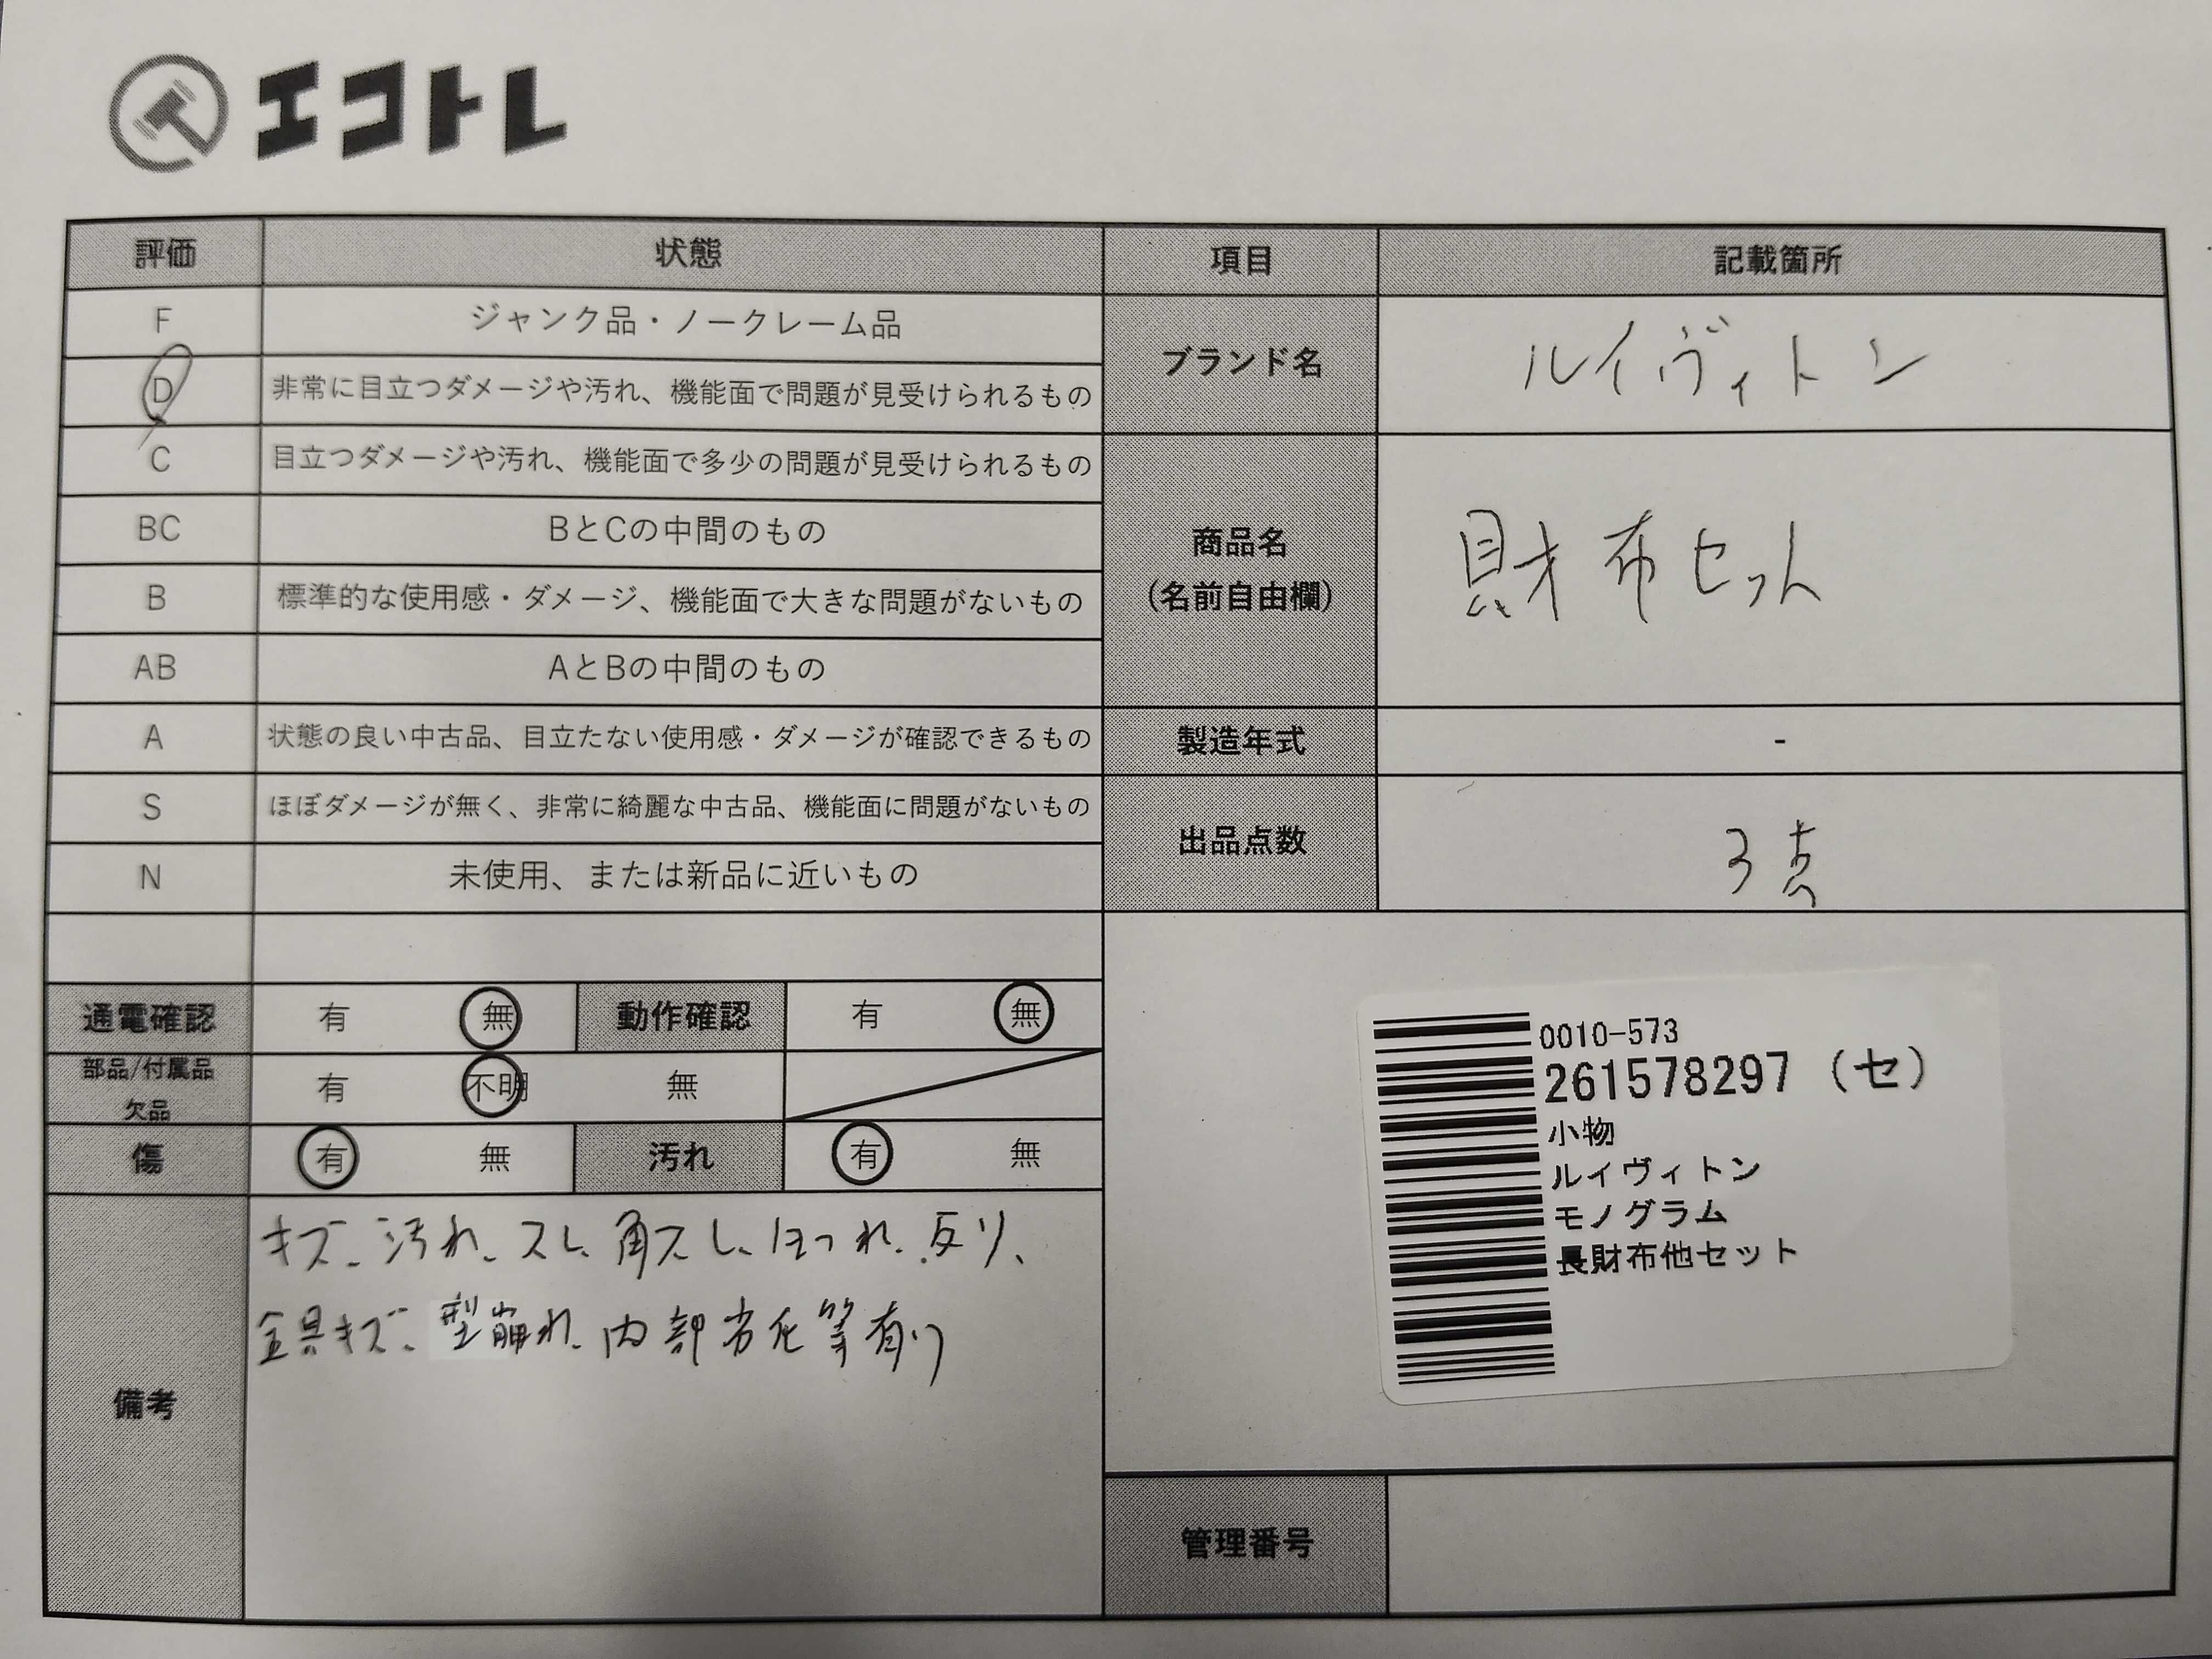 エコトレ
評価 状態
F ジャンク品・ノークレーム品
D 非常に目立つダメージや汚れ、機能面で問題が見受けられるもの
C 目立つダメージや汚れ、機能面で多少の問題が見受けられるもの
BC BとCの中間のもの
B 標準的な使用感・ダメージ、機能面で大きな問題がないもの
AB AとBの中間のもの
A 状態の良い中古品、目立たない使用感・ダメージが確認できるもの
S ほぼダメージが無く、非常に綺麗な中古品、機能面に問題がないもの
N 未使用、または新品に近いもの
通電確認 有 無 動作確認 有 無
部品/付属品
欠品 有 不明 無
傷 有 無 汚れ 有 無
備考
キズ、汚れ、スレ、角スレ、ほつれ、反り、
金具キズ、型崩れ、内部劣化等有り
項目 記載箇所
ブランド名 ルイヴィトン
商品名
(名前自由欄)
財布セット
製造年式 -
出品点数 3点
0010-573
261578297 (セ)
小物
ルイヴィトン
モノグラム
長財布他セット
管理番号